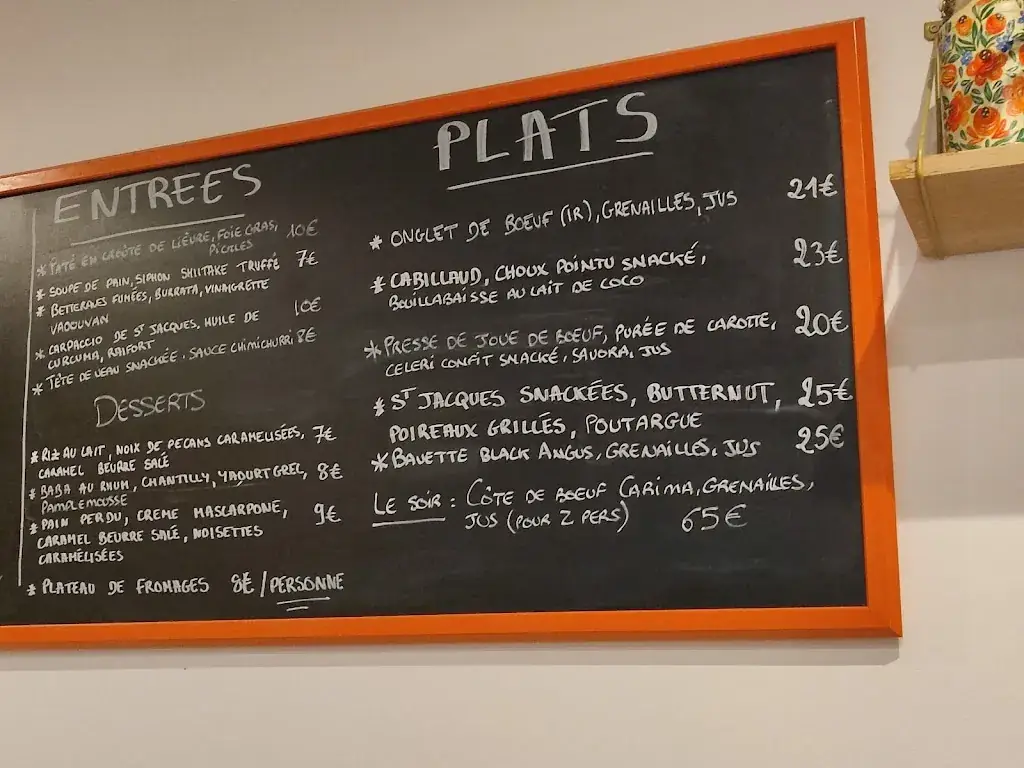 ENTREES
* PATÉ EN CROÛTE DE LIÈVRE, FOIE GRAS, 10€
PICKLES
* SOUPE DE PAIN, SIPHON SHIITAKE TRUFFÉ 7€
* BETTERAVES FUMÉES, BURRATA, VINAIGRETTE
VADOUVAN 10€
* CARPACCIO DE ST JACQUES, HUILE DE
CURCUMA, RAIFORT
* TÊTE DE VEAU SNACKÉE, SAUCE CHIMICHURRI 8€
DESSERTS
* RIZ AU LAIT, NOIX DE PECANS CARAMELISÉES, 7€
CARAMEL BEURRE SALÉ
* BABA AU RHUM, CHANTILLY, YAOURT GREC, 8€
PAMPLEMOUSSE
* PAIN PERDU, CREME MASCARPONE, 9€
CARAMEL BEURRE SALÉ, NOISETTES
CARAMÉLISÉES
* PLATEAU DE FROMAGES 8€/PERSONNE
PLATS
* ONGLET DE BOEUF (IR), GRENAILLES, JUS 21€
* CABILLAUD, CHOUX POINTU SNACKÉ, 23€
BOUILLABAISSE AU LAIT DE COCO
* PRESSE DE JOUE DE BOEUF, PURÉE DE CAROTTE, 20€
CELERI CONFIT SNACKÉ, SAVORA, JUS
* ST JACQUES SNACKÉES, BUTTERNUT, 25€
POIREAUX GRILLÉS, POUTARGUE
* BAVETTE BLACK ANGUS, GRENAILLES, JUS 25€
LE SOIR : CÔTE DE BOEUF CARIMA, GRENAILLES,
JUS (POUR 2 PERS) 65€